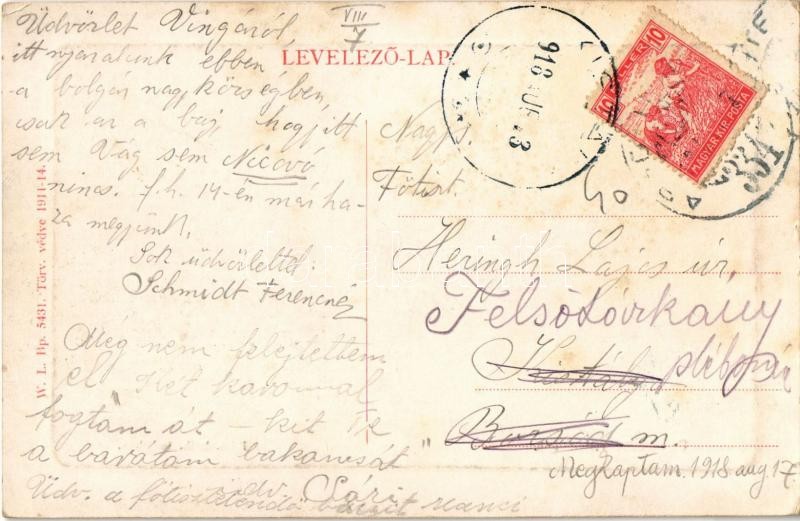 Üdvözlet Vingáról,
itt nyaralunk ebben
a bolgár nagyközségben,
csak az a baj, hogy itt
sem Vág sem Nicovó
nincs. f. h. 14-én már ha-
za megyünk.
Sok üdvözlettel:
Schmidt Ferencné
Még nem felejtettem
el Két kavonnal
fogtam át – kit te
a barátam bakancsát
Üdv. a főtisztelendő
Sári
VIII/7
LEVELEZŐ-LAP
W. L. Bp. 5431. Törv. védve 1911-14.
918
10 FILLÉR 10
MAGYAR KIR. POSTA
Nags.
Főtiszt.
Heringh Lajos úr,
Felsőtárkány
plébános
Borsod m.
Megkaptam. 1918 aug 17.